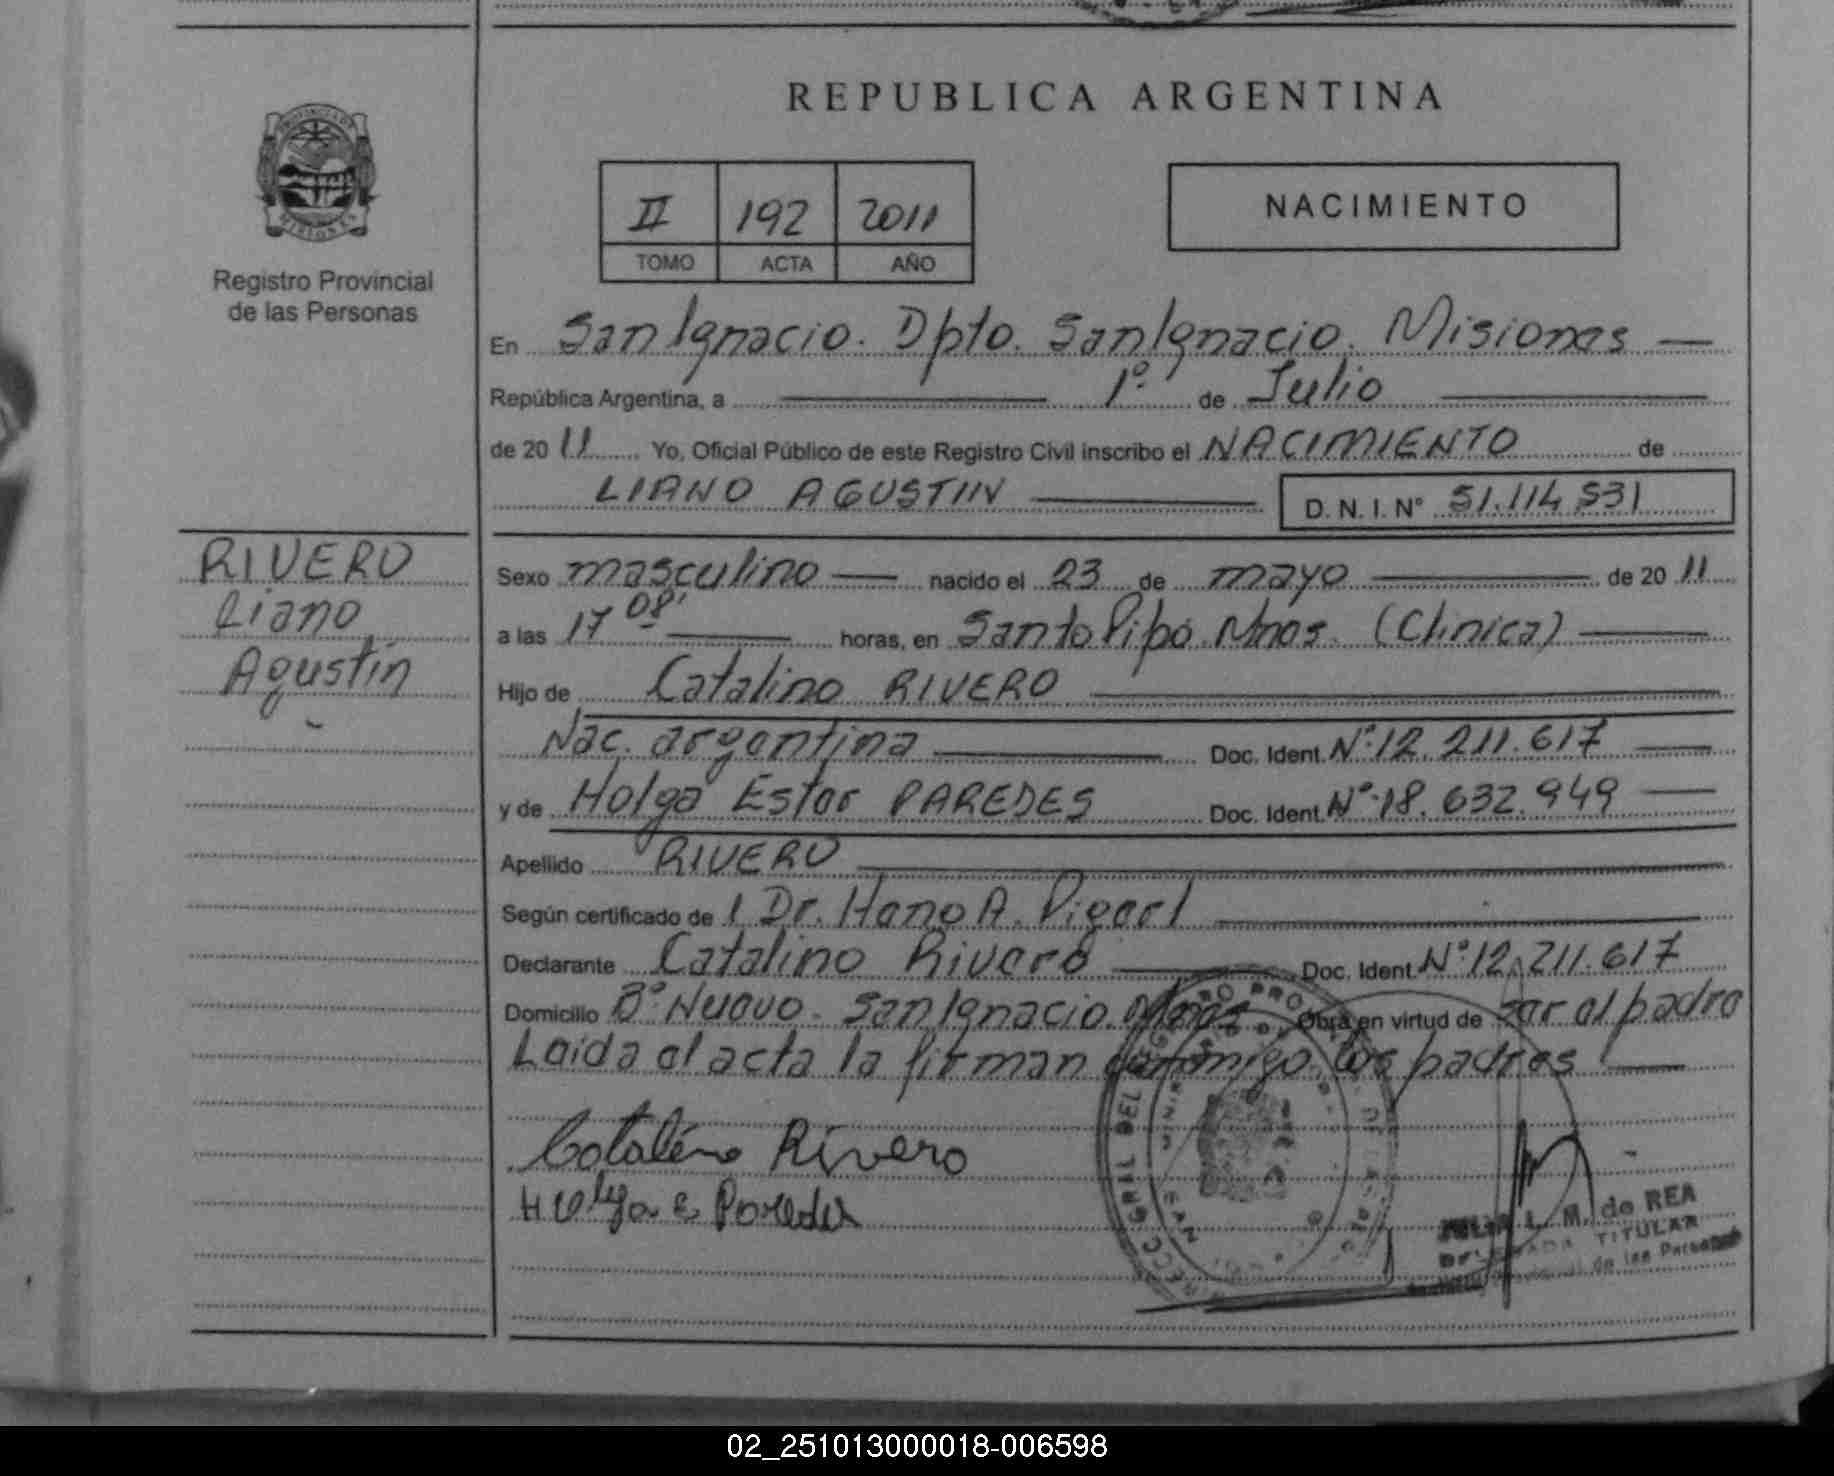 REPUBLICA ARGENTINA
II 192 2011
TOMO ACTA AÑO
NACIMIENTO
Registro Provincial
de las Personas
En San Ignacio. Dpto. San Ignacio. Misiones
República Argentina, a 1º de Julio
de 2011 Yo, Oficial Público de este Registro Civil inscribo el NACIMIENTO de
LIANO AGUSTIIN D. N. I. Nº 51.114 531
RIVERO
Liano
Agustin
Sexo masculino nacido el 23 de mayo de 2011
a las 17 08' horas, en Santo Pipó Mnes. (Clinica)
Hijo de Catalino RIVERO
Nac. argentina Doc. Ident. Nº 12.211.617
y de Holga Ester PAREDES Doc. Ident. Nº 18.632.949
Apellido RIVERO
Según certificado de l Dr. Hano A.
Declarante Catalino Rivero Doc. Ident. Nº 12.211.617
Domicilio Bº Nuevo. San Ignacio. Mnes Obra en virtud de ser el padre
Leida el acta la firman conmigo los padres
Catalino Rivero
Holga E Paredes
L. M. de REA
TITULAR
de las Personas
02_251013000018-006598